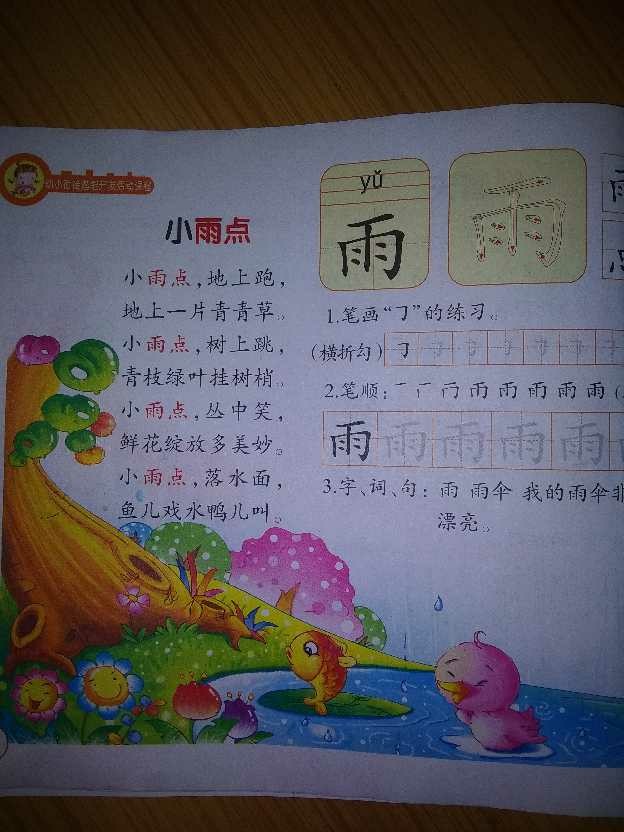 小雨点
小雨点,地上跑,
地上一片青青草。
小雨点,树上跳,
青枝绿叶挂树梢。
小雨点,丛中笑,
鲜花绽放多美妙。
小雨点,落水面,
鱼儿戏水鸭儿叫。
yǔ
雨
雨
1.笔画“㇆”的练习。
(横折勾)
2.笔顺:
雨 雨 雨 雨 雨
3.字、词、句: 雨 雨伞 我的雨伞非
漂亮。